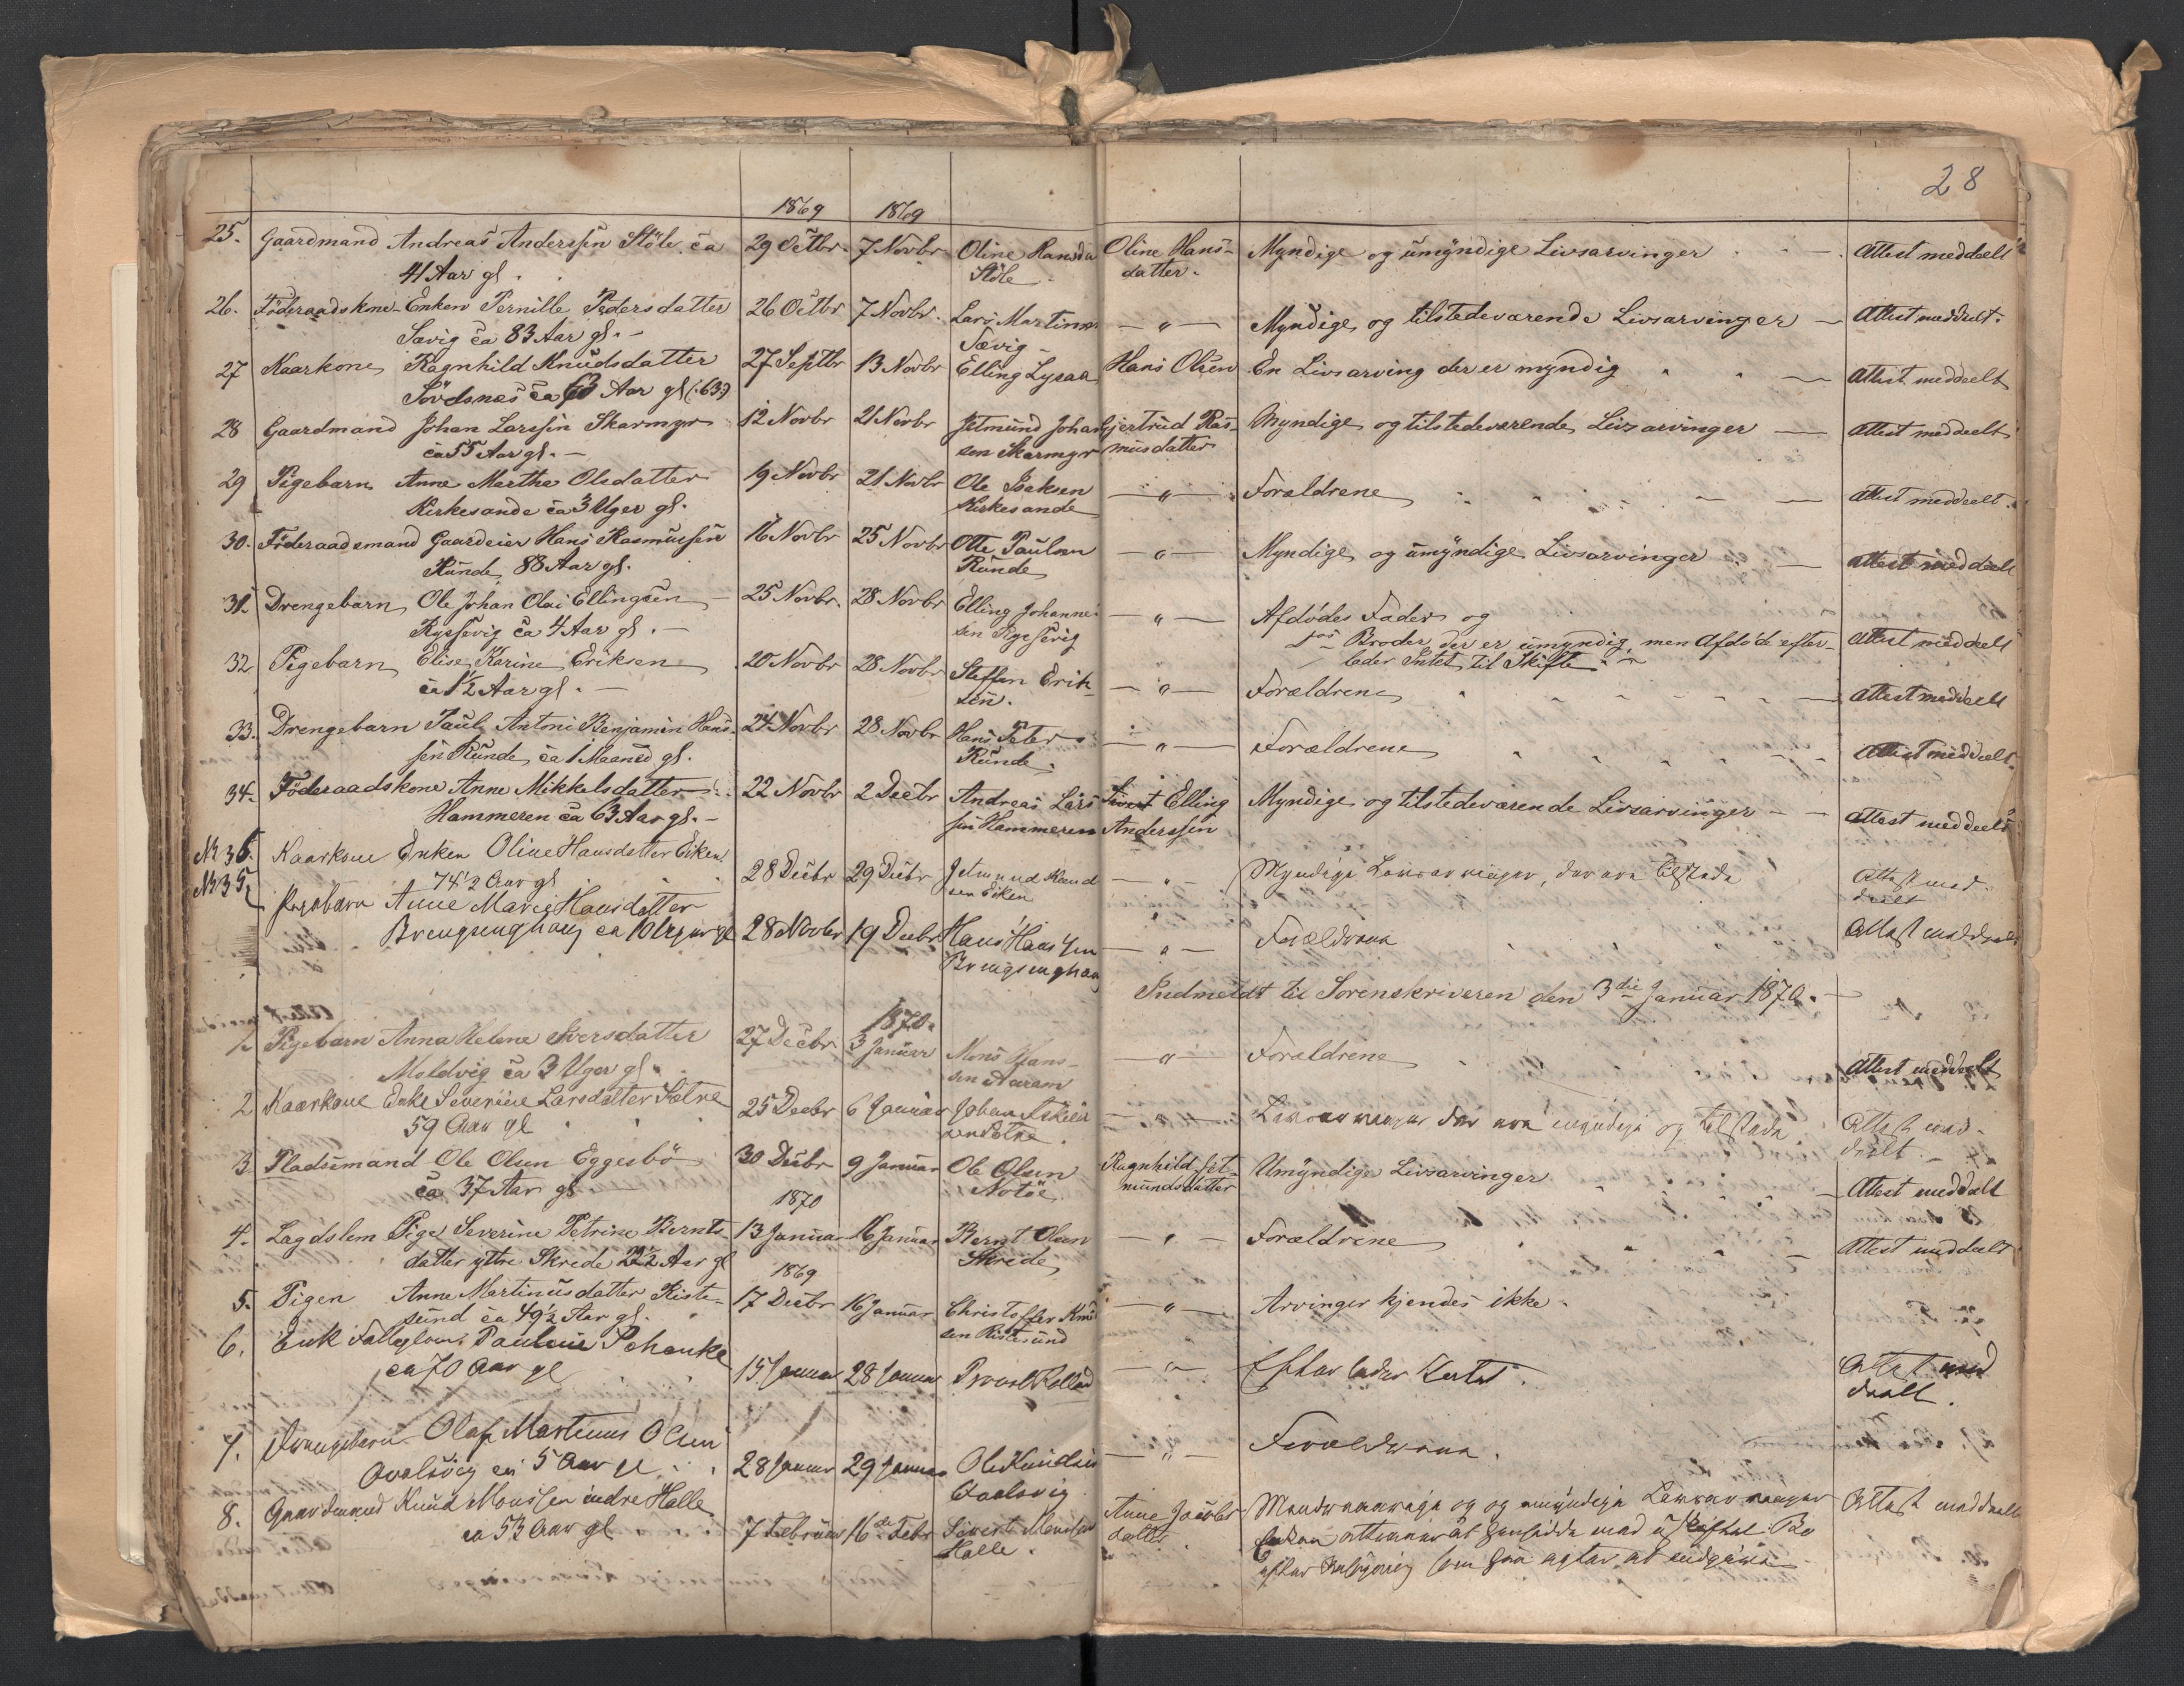 28
1869 1869
25. Gaardmand Andreas Anderssen Støle ca 29 Octbr. 7 Novbr. Oline Hansda Oline Hans- Myndige og umyndige Livsarvinger Attest meddeelt
41 Aar gl. Støle datter.
26. Föderaadskone Enken Pernille Pedersdatter 26 Octbr 7 Novbr. Lars Martinus — " — Myndige og tilstedeværende Livsarvinger — Attest meddeelt.
Sævig ca 83 Aar gl. — Sævig
27 Kaarkone Ragnhild Knudsdatter 27 Septbr 13 Novbr Elling Hans Olsen En Livsarving der er myndig " " — Attest meddeelt
ca 63 Aar gl (:63:)
28 Gaardmand Johan Larssen Skarmyr 12 Novbr 21 Novbr Jetmund Johan Gjertrud Ras- Myndige og tilstedeværende Livsarvinger — Attest meddeelt
ca 55 Aar gl. — sen Skarmyr musdatter
29 Pigebarn Anne Marthe Olsdatter 19 Novbr 21 Novbr Ole Isaksen — " — Forældrene — — Attest meddeelt.
Kirkesande ca 3 Uger gl. Kirkesande
30. Föderaadsmand Gaardeier Hans Rasmussen 16 Novbr 25 Novbr Otte Paulsen — " — Myndige og umyndige Livsarvinger — Attest meddeelt
Runde 88 Aar gl. Runde
31 Drengebarn Ole Johan Olai Ellingsen 25 Novbr. 28 Novbr Elling Johanne- — " — Afdødes Fader og
ca 4 Aar gl. — sen Broder der er umyndig, men Afdøde efter- Attest meddeelt
lader Intet til Skifte.
32 Pigebarn Elise Karine Eriksen 20 Novbr 28 Novbr Steffen Erik- — " — Forældrene Attest meddeelt
ca 1½ Aar gl. — sen.
33. Drengebarn Paul Antoni Benjamin Hans- 24 Novbr 28 Novbr Hans Peter — " — Forældrene Attest meddeelt.
sen Runde ca 1 Maaned gl. Runde
34. Föderaadskone Anne Mikkelsdatter 22 Novbr 2 Decbr Andreas Lars Sivert Elling Myndige og tilstedeværende Livsarvinger — Attest meddeelt
Hammeren ca 63 Aar gl. — sen Hammeren Anderssen
No 36. Kaarkone Enken Oline Hansdatter Eiken 28 Decbr 29 Decbr Jetmund — " — Myndige Livsarvinger, der ere tilstede Attest med-
74½ Aar gl sen Eiken deelt
No 35. Pigebarn Anne Marie Hansdatter 28 Novbr 19 Decbr Hans Hanssen — " — Forældrene Attest meddeelt
ca 10 Uger gl
Indmeldt til Sorenskriveren den 3die Januar 1870. —
1870.
1. Pigebarn Anna Helene Iversdatter 27 Decbr 3 Januar Mons Hans- — " — Forældrene Attest meddeelt
Moldvig ca 3 Uger gl. sen Aaram
2 Kaarkone Enke Severine Larsdatter Sætre 25 Decbr 6 Januar Johan — " — Livsarvinger der ere myndige og tilstede Attest med-
59 Aar gl deelt.
3. Pladsmand Ole Olsen Eggesbö 30 Decbr 9 Januar Ole Olsen Ragnhild Jet- Umyndige Livsarvinger — Attest meddelt
ca 37 Aar gl mundsdatter
1870
4. Lagdslem Pige Severine Petrine Bernts- 13 Januar 16 Januar Bernt Olsen — " — Forældrene Attest meddeelt
datter yttre Skrede 22½ Aar gl Skrede
1869
5. Pigen Anne Martinusdatter Riste- 17 Decbr 16 Januar Christoffer Knud — " — Arvinger kjendes ikke.
sund ca 49½ Aar gl. sen Ristesund
6. Enk Fattiglem Pauline Schanke 15 Januar 28 Januar Provst — " — Efterlader Intet. Attest med
ca 70 Aar gl deelt.
7. Drengebarn Olaf Martinus Olsen 28 Januar 29 Januar Ole Knudsen — " — Forældrene.
ca 5 Aar gl
8. Gaardmand Knud Monssen indre Halle 7 Februar 16de Febr Sivert Monsen Anne Jacobs- og umyndige Livsarvinger Attest meddeelt
ca 53 Aar gl Halle. datter Enken at hensidde med uskiftet Bo
efter som hun agter at indgive